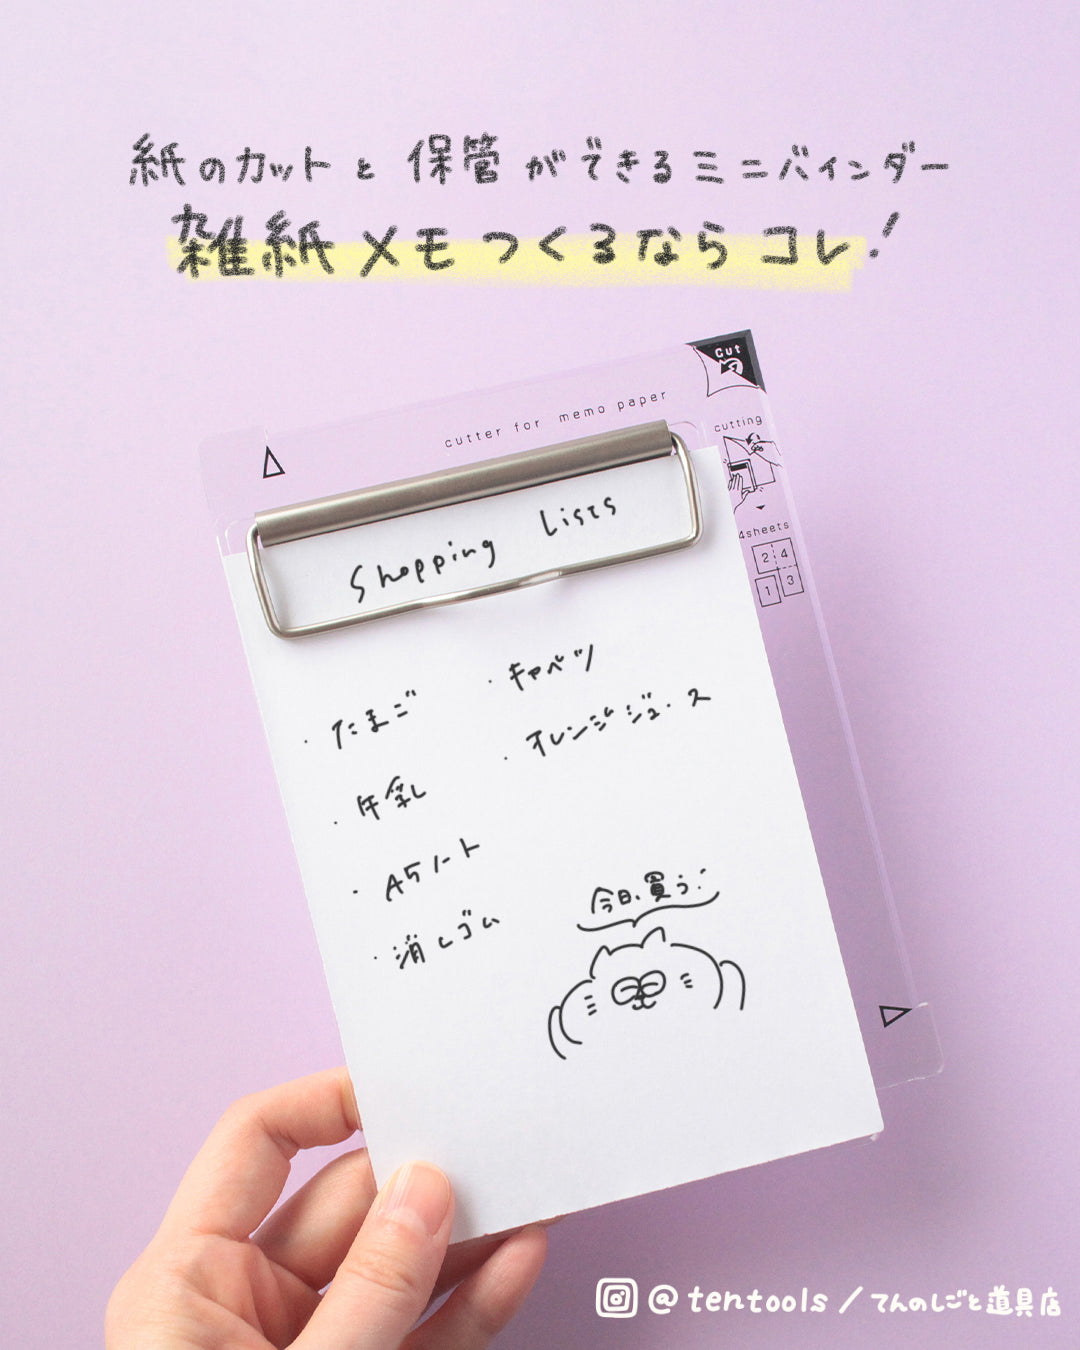 紙のカットと保管ができるミニバインダー
雑紙メモつくるならコレ!
Cut
cutter for memo paper
cutting
4sheets
2 4
1 3
Shopping Lists
・たまご
・牛乳
・A5ノート
・消しゴム
・キャベツ
・オレンジジュース
今日、買う!
@tentools/てんのしごと道具店